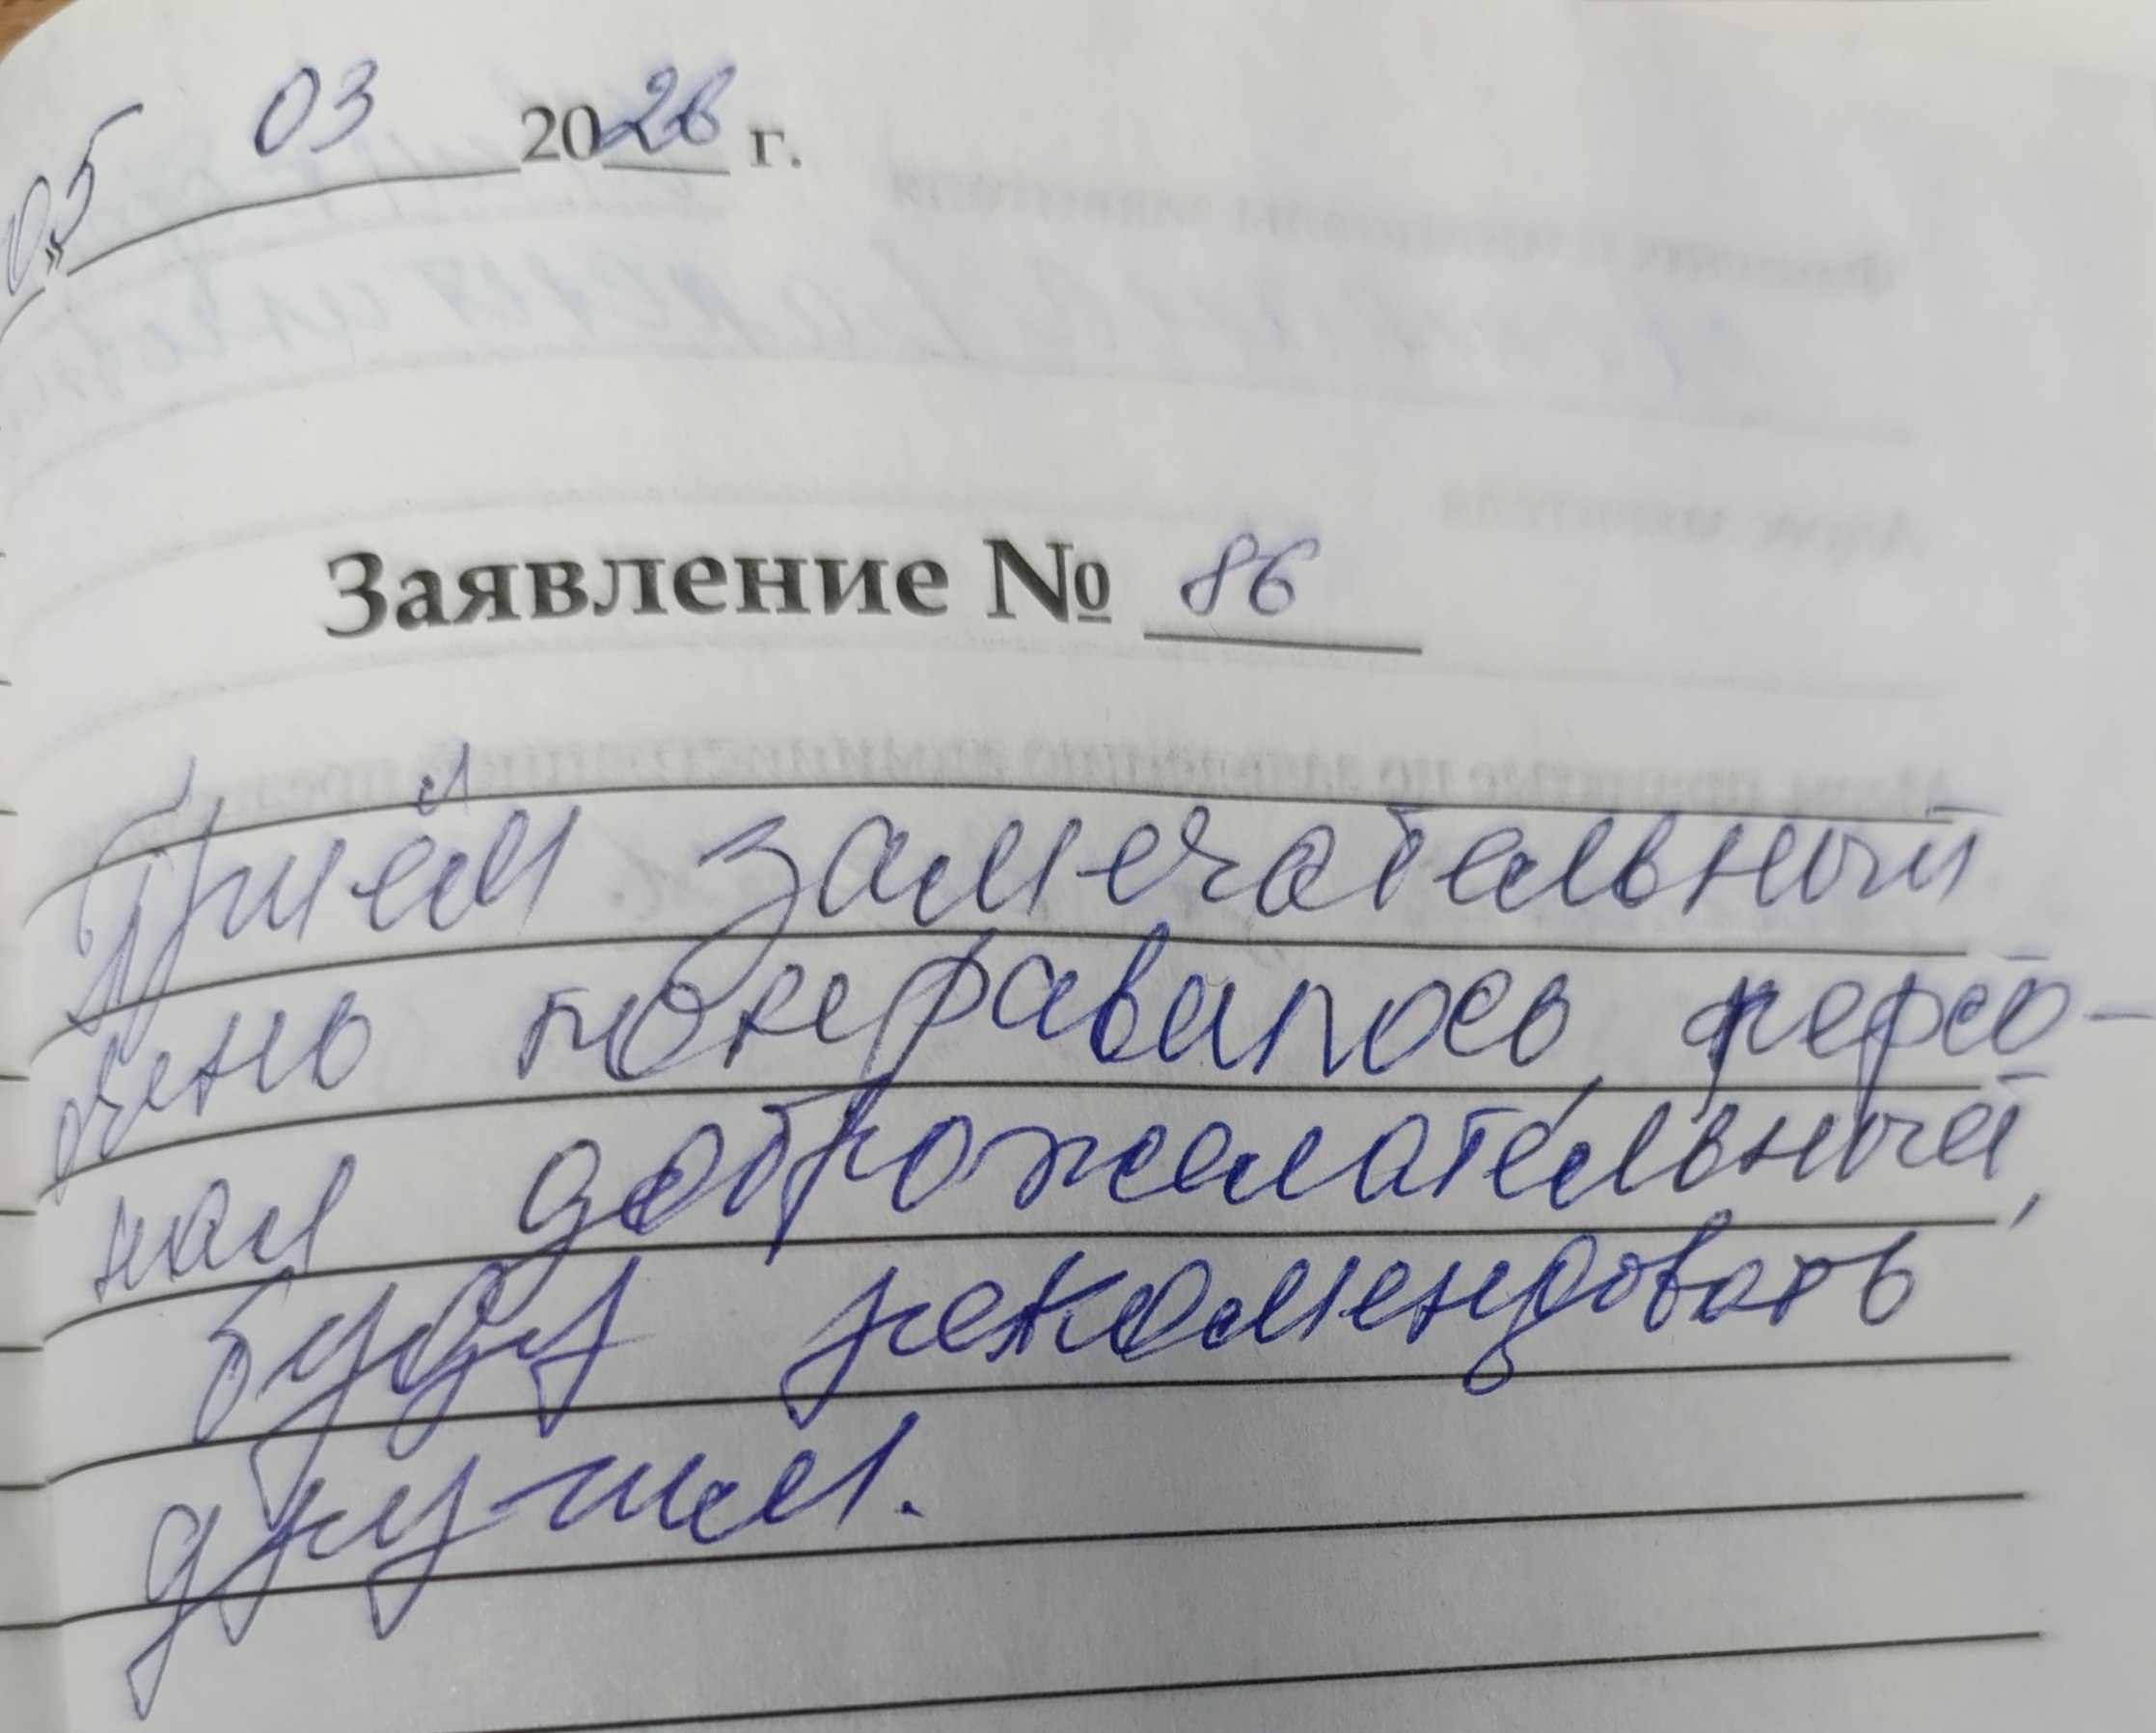 05 03 2026 г.
Заявление № 86
Приём замечательный
очень понравилось, персо-
нал доброжелательный,
буду рекомендовать
другим.